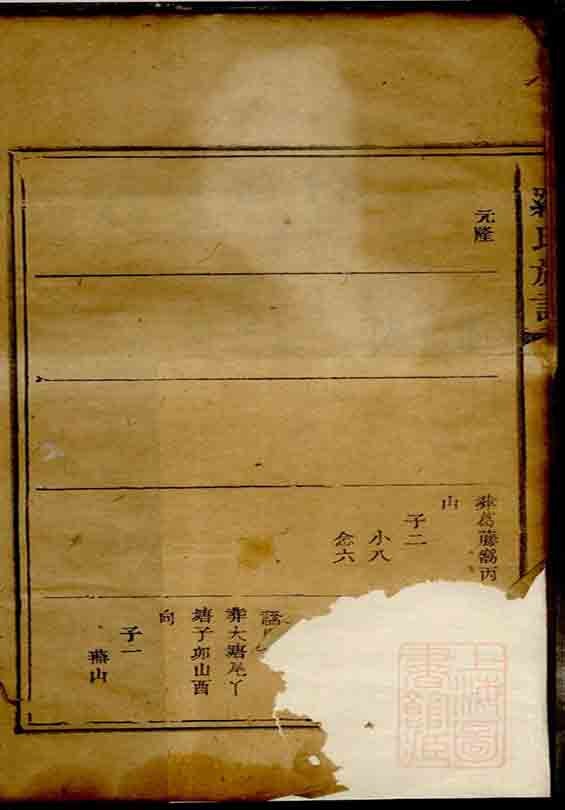 氏族譜
元隆
葬葛藤窩丙
山
子二
小八
念六
葬大塘尾丫
塘子卯山酉
向
子一
燕山
上海圖
書館藏